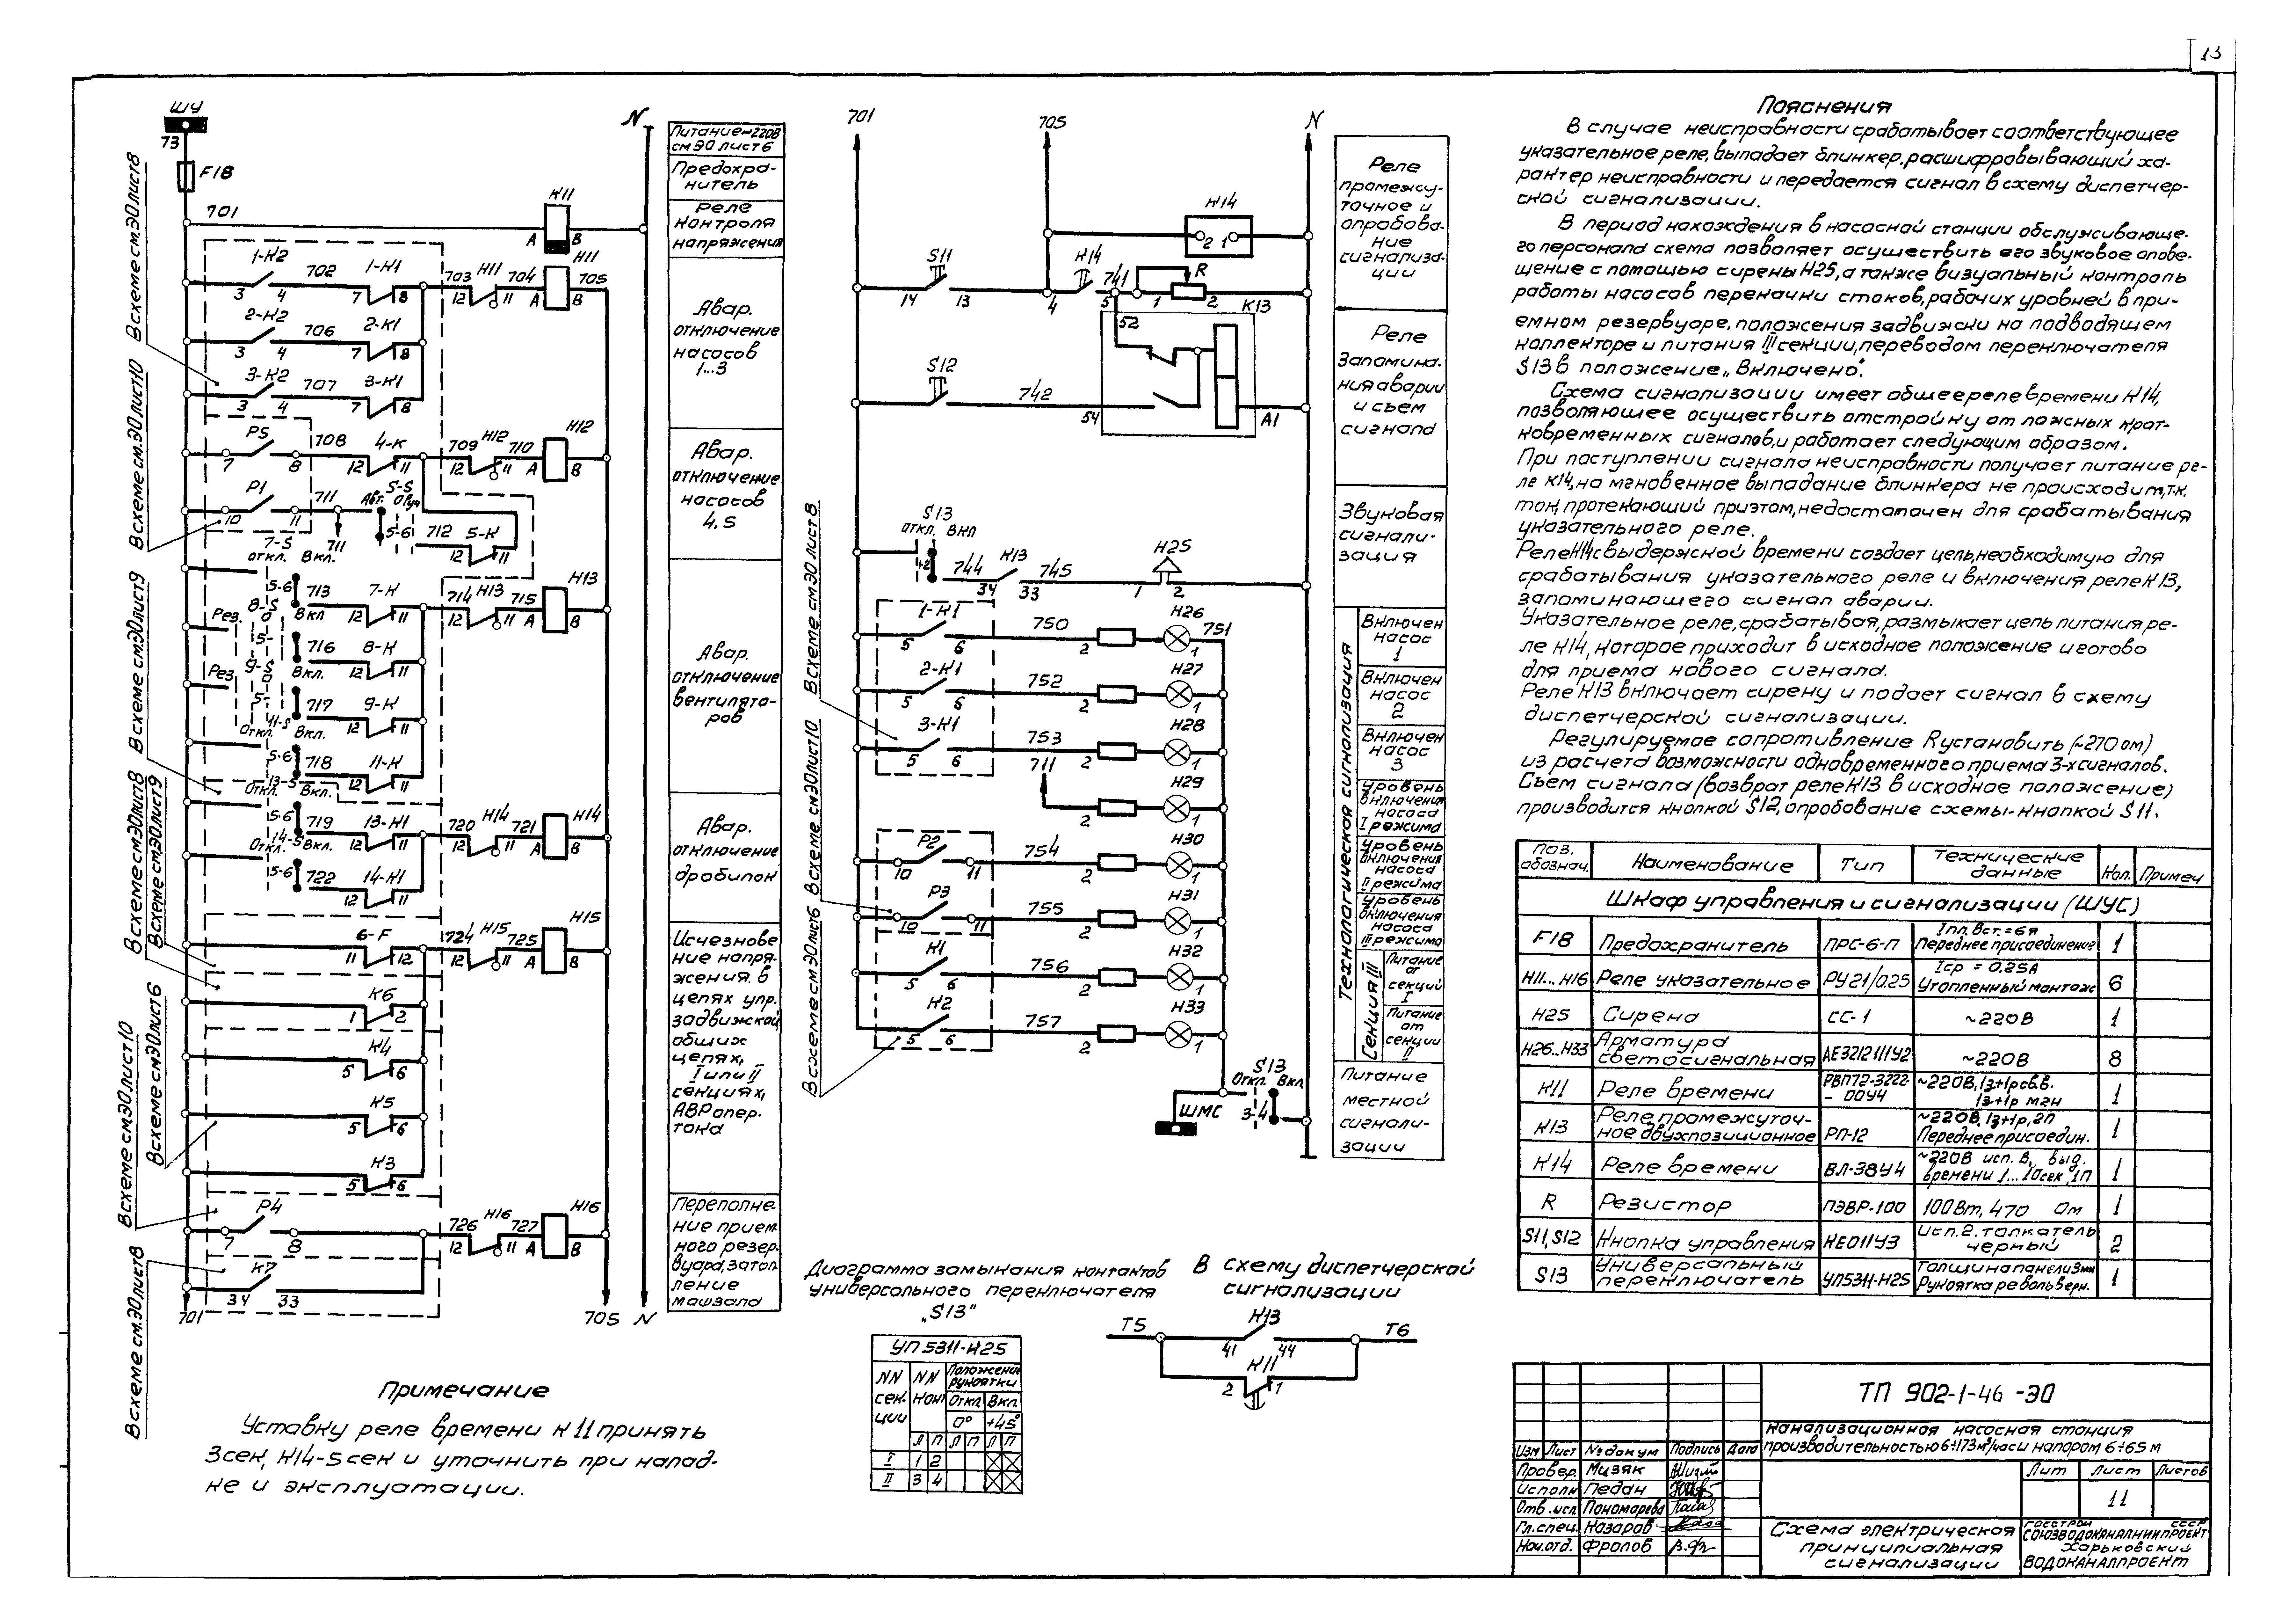 13
ШУ
73
F18
701
К11
А В
N
1-К2 702 1-К1 703 Н11 704 Н11 705
3 4 7 8 12 11 А В
2-К2 706 2-К1
3 4 7 8
3-К2 707 3-К1
3 4 7 8
Р5 708 4-К 709 Н12 710 Н12
7 8 12 11 12 11 А В
Р1 711 5-S
Авт. О Руч
10 11 711 5-6 712 5-К
12 11
7-S
откл. Вкл.
5-6 713 7-К 714 Н13 715 Н13
12 11 12 11 А В
8-S
Рез. О Вкл
5- 716 8-К
12 11
9-S
Рез Вкл.
5- 717 9-К
12 11
11-S
Откл. Вкл.
5-6 718 11-К
12 11
13-S
Откл. Вкл.
5-6 719 13-К1 720 Н14 721 Н14
12 11 12 11 А В
14-S
Откл. Вкл.
5-6 722 14-К1
12 11
6-F 724 Н15 725 Н15
11 12 12 11 А В
К6
1 2
К4
5 6
К5
5 6
К3
5 6
Р4 726 Н16 727 Н16
7 8 12 11 А В
К7
34 33
701 705 N
В схеме см.ЭО лист8
В схеме см.ЭО лист10
В схеме см.ЭО лист9
В схеме см.ЭО лист8
В схеме см.ЭО лист9
В схеме см.ЭО лист6
В схеме см.ЭО лист10
В схеме см.ЭО лист8
Питание~220В
см ЭО лист6
Предохра-
нитель
Реле
контроля
напряжения
Авар.
отключение
насосов
1...3
Авар.
отключение
насосов
4,5
Авар.
отключение
вентилято-
ров
Авар.
отключение
дробилок
Исчезнове
ние напря-
жения. в
цепях упр.
задвижской,
общих
цепях,
I или II
секциях,
АВР опер.
тока
Переполне-
ние прием.
ного резер.
вуара, затоп
ление
машзала
Примечание
Уставку реле времени К11 принять
3сек, К14-5сек и уточнить при налад-
ке и эксплуатации.
701 705 N
К14
2 1
S11 К14 741 R
14 13 4 5 1 2
К13
52
S12 742
54 А1
S13
откл. Вкл
1-2 744 К13 745 Н25
34 33 1 2
1-К1 750 Н26 751
5 6 2 1
2-К1 752 Н27
5 6 2 1
3-К1 753 Н28
5 6 2 1
711 Н29
2 1
Р2 754 Н30
10 11 2 1
Р3 755 Н31
10 11 2 1
К1 756 Н32
5 6 2 1
К2 757 Н33
5 6 2 1
ШМС
S13
Откл. Вкл
3-4
В схеме см ЭО лист 8
В схеме см ЭО лист10
В схеме см ЭО лист6
Реле
промежу-
точное и
опробова-
ние
сигнализа-
ции
Реле
Запомина-
ния аварии
и съем
сигнала
Звуковая
сигнали-
зация
Технологическая сигнализация
Включен
насос
1
Включен
насос
2
Включен
насос
3
Уровень
включения
насоса
I режима
Уровень
включения
насоса
II режима
Уровень
включения
насоса
III режима
Секция III
Питание
от
секции
I
Питание
от
секции
II
Питание
местной
сигнали-
зации
Диаграмма замыкания контактов
универсального переключателя
„S13"
УП 5311-Н25
NN сек-ции
NN конт
Положение рукоятки
Откл Вкл.
0° +45°
Л П Л П Л П
I 1 2
II 3 4
В схему диспетчерской
сигнализации
Т5 К13 Т6
41 44
К11
2 1
Пояснения
В случае неисправности срабатывает соответствующее
указательное реле, выпадает блинкер, расшифровывающий ха-
рактер неисправности и передается сигнал в схему диспетчер-
ской сигнализации.
В период нахождения в насосной станции обслуживающе-
го персонала схема позволяет осуществить его звуковое опове-
щение с помощью сирены Н25, а также визуальный контроль
работы насосов перекачки стоков, рабочих уровней в при-
емном резервуаре, положения задвижки на подводящем
коллекторе и питания III секции, переводом переключателя
S13 в положение „Включено".
Схема сигнализации имеет общее реле времени К14,
позволяющее осуществить отстройку от ложных крат-
ковременных сигналов, и работает следующим образом.
При поступлении сигнала неисправности получает питание ре-
ле К14, но мгновенное выпадание блинкера не происходит, т.к.
ток, протекающий приэтом, недостаточен для срабатывания
указательного реле.
Реле К14 с выдержкой времени создает цепь, необходимую для
срабатывания указательного реле и включения реле К13,
запоминающего сигнал аварии.
Указательное реле, срабатывая, размыкает цепь питания ре-
ле К14, которое приходит в исходное положение и готово
для приема нового сигнала.
Реле К13 включает сирену и подает сигнал в схему
диспетчерской сигнализации.
Регулируемое сопротивление R установить (~270 ом)
из расчета возможности одновременного приема 3-х сигналов.
Съем сигнала (возврат реле К13 в исходное положение)
производится кнопкой S12, опробование схемы-кнопкой S11.
Поз. обознач. Наименование Тип Технические данные Кол. Примеч
Шкаф управления и сигнализации (ШУС)
F18 Предохранитель ПРС-6-П Iпл. вст.=6А Переднее присоединение 1
Н11...Н16 Реле указательное РУ21/0.25 Iср = 0.25А Утопленный монтаж 6
Н25 Сирена СС-1 ~220В 1
Н26..Н33 Арматура светосигнальная АЕ3212111У2 ~220В 8
К11 Реле времени РВП72-3222-00У4 ~220В, 1з+1р св.в. 1з+1р мгн 1
К13 Реле промежуточ-ное двухпозиционное РП-12 ~220В, 1з+1р, 2П Переднее присоедин. 1
К14 Реле времени ВЛ-38У4 ~220В исп. В, выд. времени 1...10сек, 1П 1
R Резистор ПЭВР-100 100Вт, 470 Ом 1
S11, S12 Кнопка управления КЕ011У3 Исп.2. толкатель черный 2
S13 Универсальный переключатель УП5311-Н25 Толщина панели 3мм Рукоятка револьверн. 1
ТП 902-1-46 -ЭО
Канализационная насосная станция
производительностью 6÷173м³/час и напором 6÷65 м
Изм Лист № докум Подпись Дата
Провер. Мизяк
Исполн Педан
Отв.исп. Пономарева
Гл.спец. Назаров
Нач.отд. Фролов
Лит Лист Листов
11
Схема электрическая
принципиальная
сигнализации
ГОССТРОЙ СССР
СОЮЗВОДОКАНАЛНИИПРОЕКТ
Харьковский
ВОДОКАНАЛПРОЕКТ